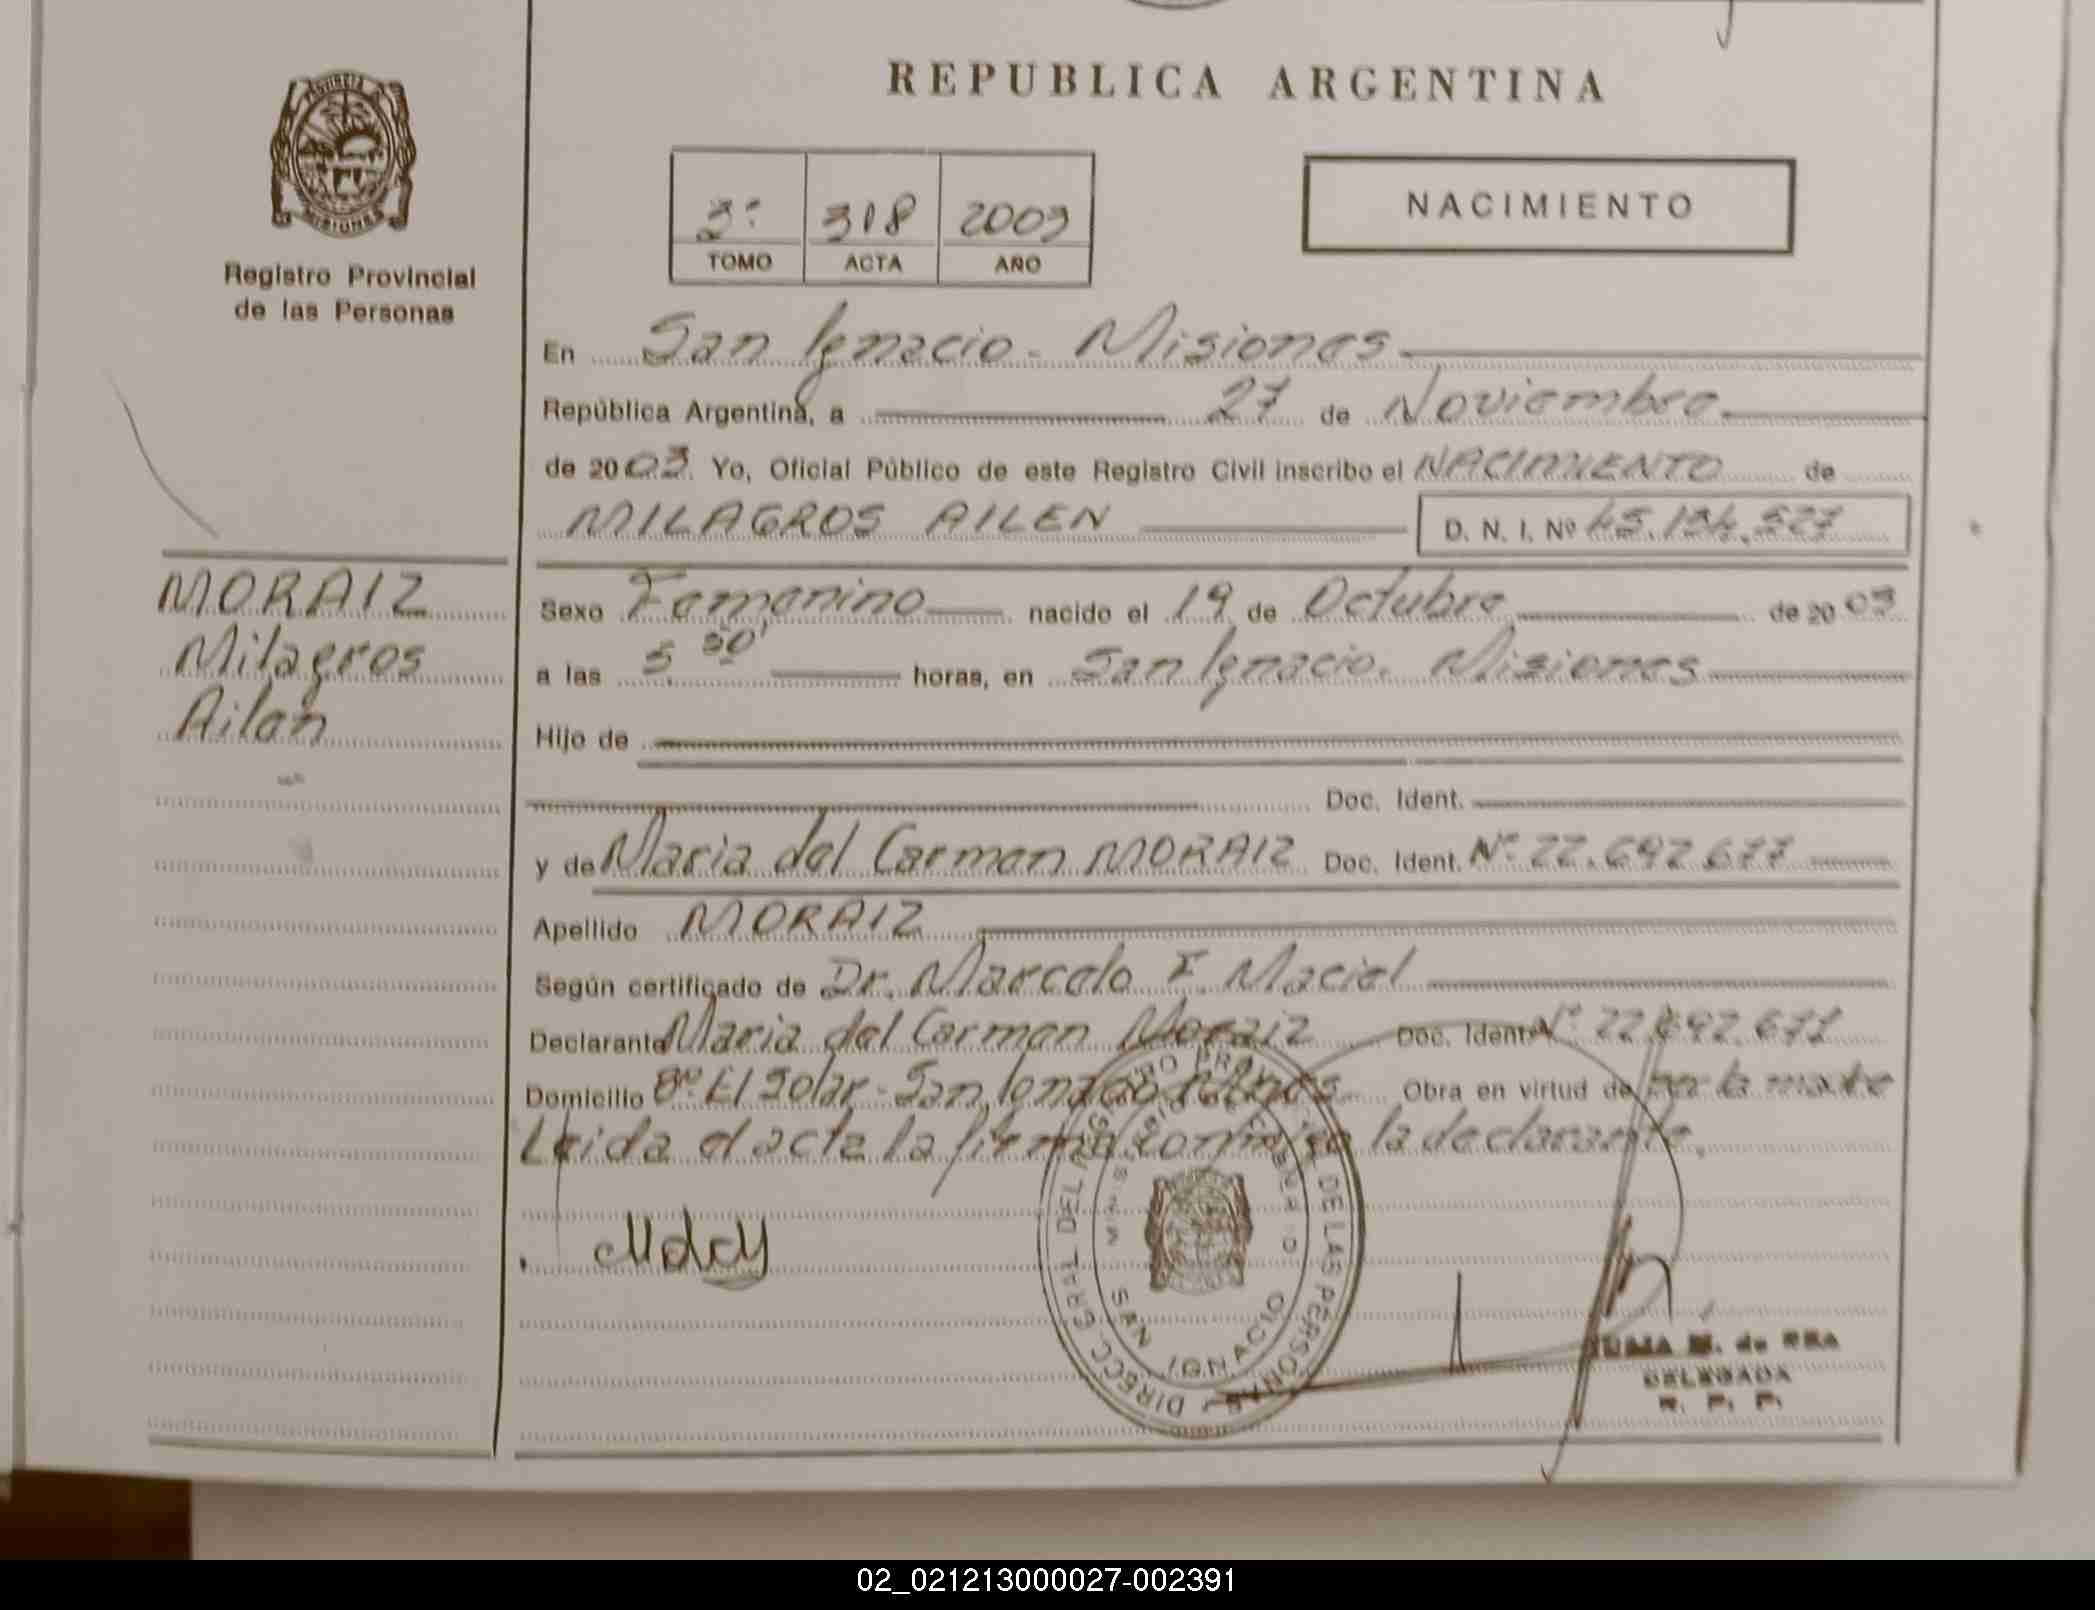 REPUBLICA ARGENTINA
PROVINCIA
MISIONES
Registro Provincial
de las Personas
318 2003
TOMO ACTA AÑO
NACIMIENTO
En San Ignacio - Misiones
República Argentina, a 27 de Noviembre
de 2003. Yo, Oficial Público de este Registro Civil inscribo el NACIMIENTO de
MILAGROS AILEN D. N. I. Nº
MORAIZ
Milagros
Ailen
Sexo Femenino nacido el 19 de Octubre de 2003
a las 5 horas, en San Ignacio. Misiones
Hijo de
Doc. Ident.
y de Maria del Carmen MORAIZ Doc. Ident. Nº 22.692.677
Apellido MORAIZ
Según certificado de Dr. Marcelo F. Maciel
Declarante Maria del Carmen Moraiz Doc. Ident. Nº 22.692.677
Domicilio Bº. El Solar - San Ignacio Obra en virtud de ser la madre
Leida el acta la firma conmigo la declarante.
DIRECC. GRAL. DEL REGISTRO PROV. DE LAS PERSONAS
SAN IGNACIO
M. de
DELEGADA
R. P. P.
02_021213000027-002391